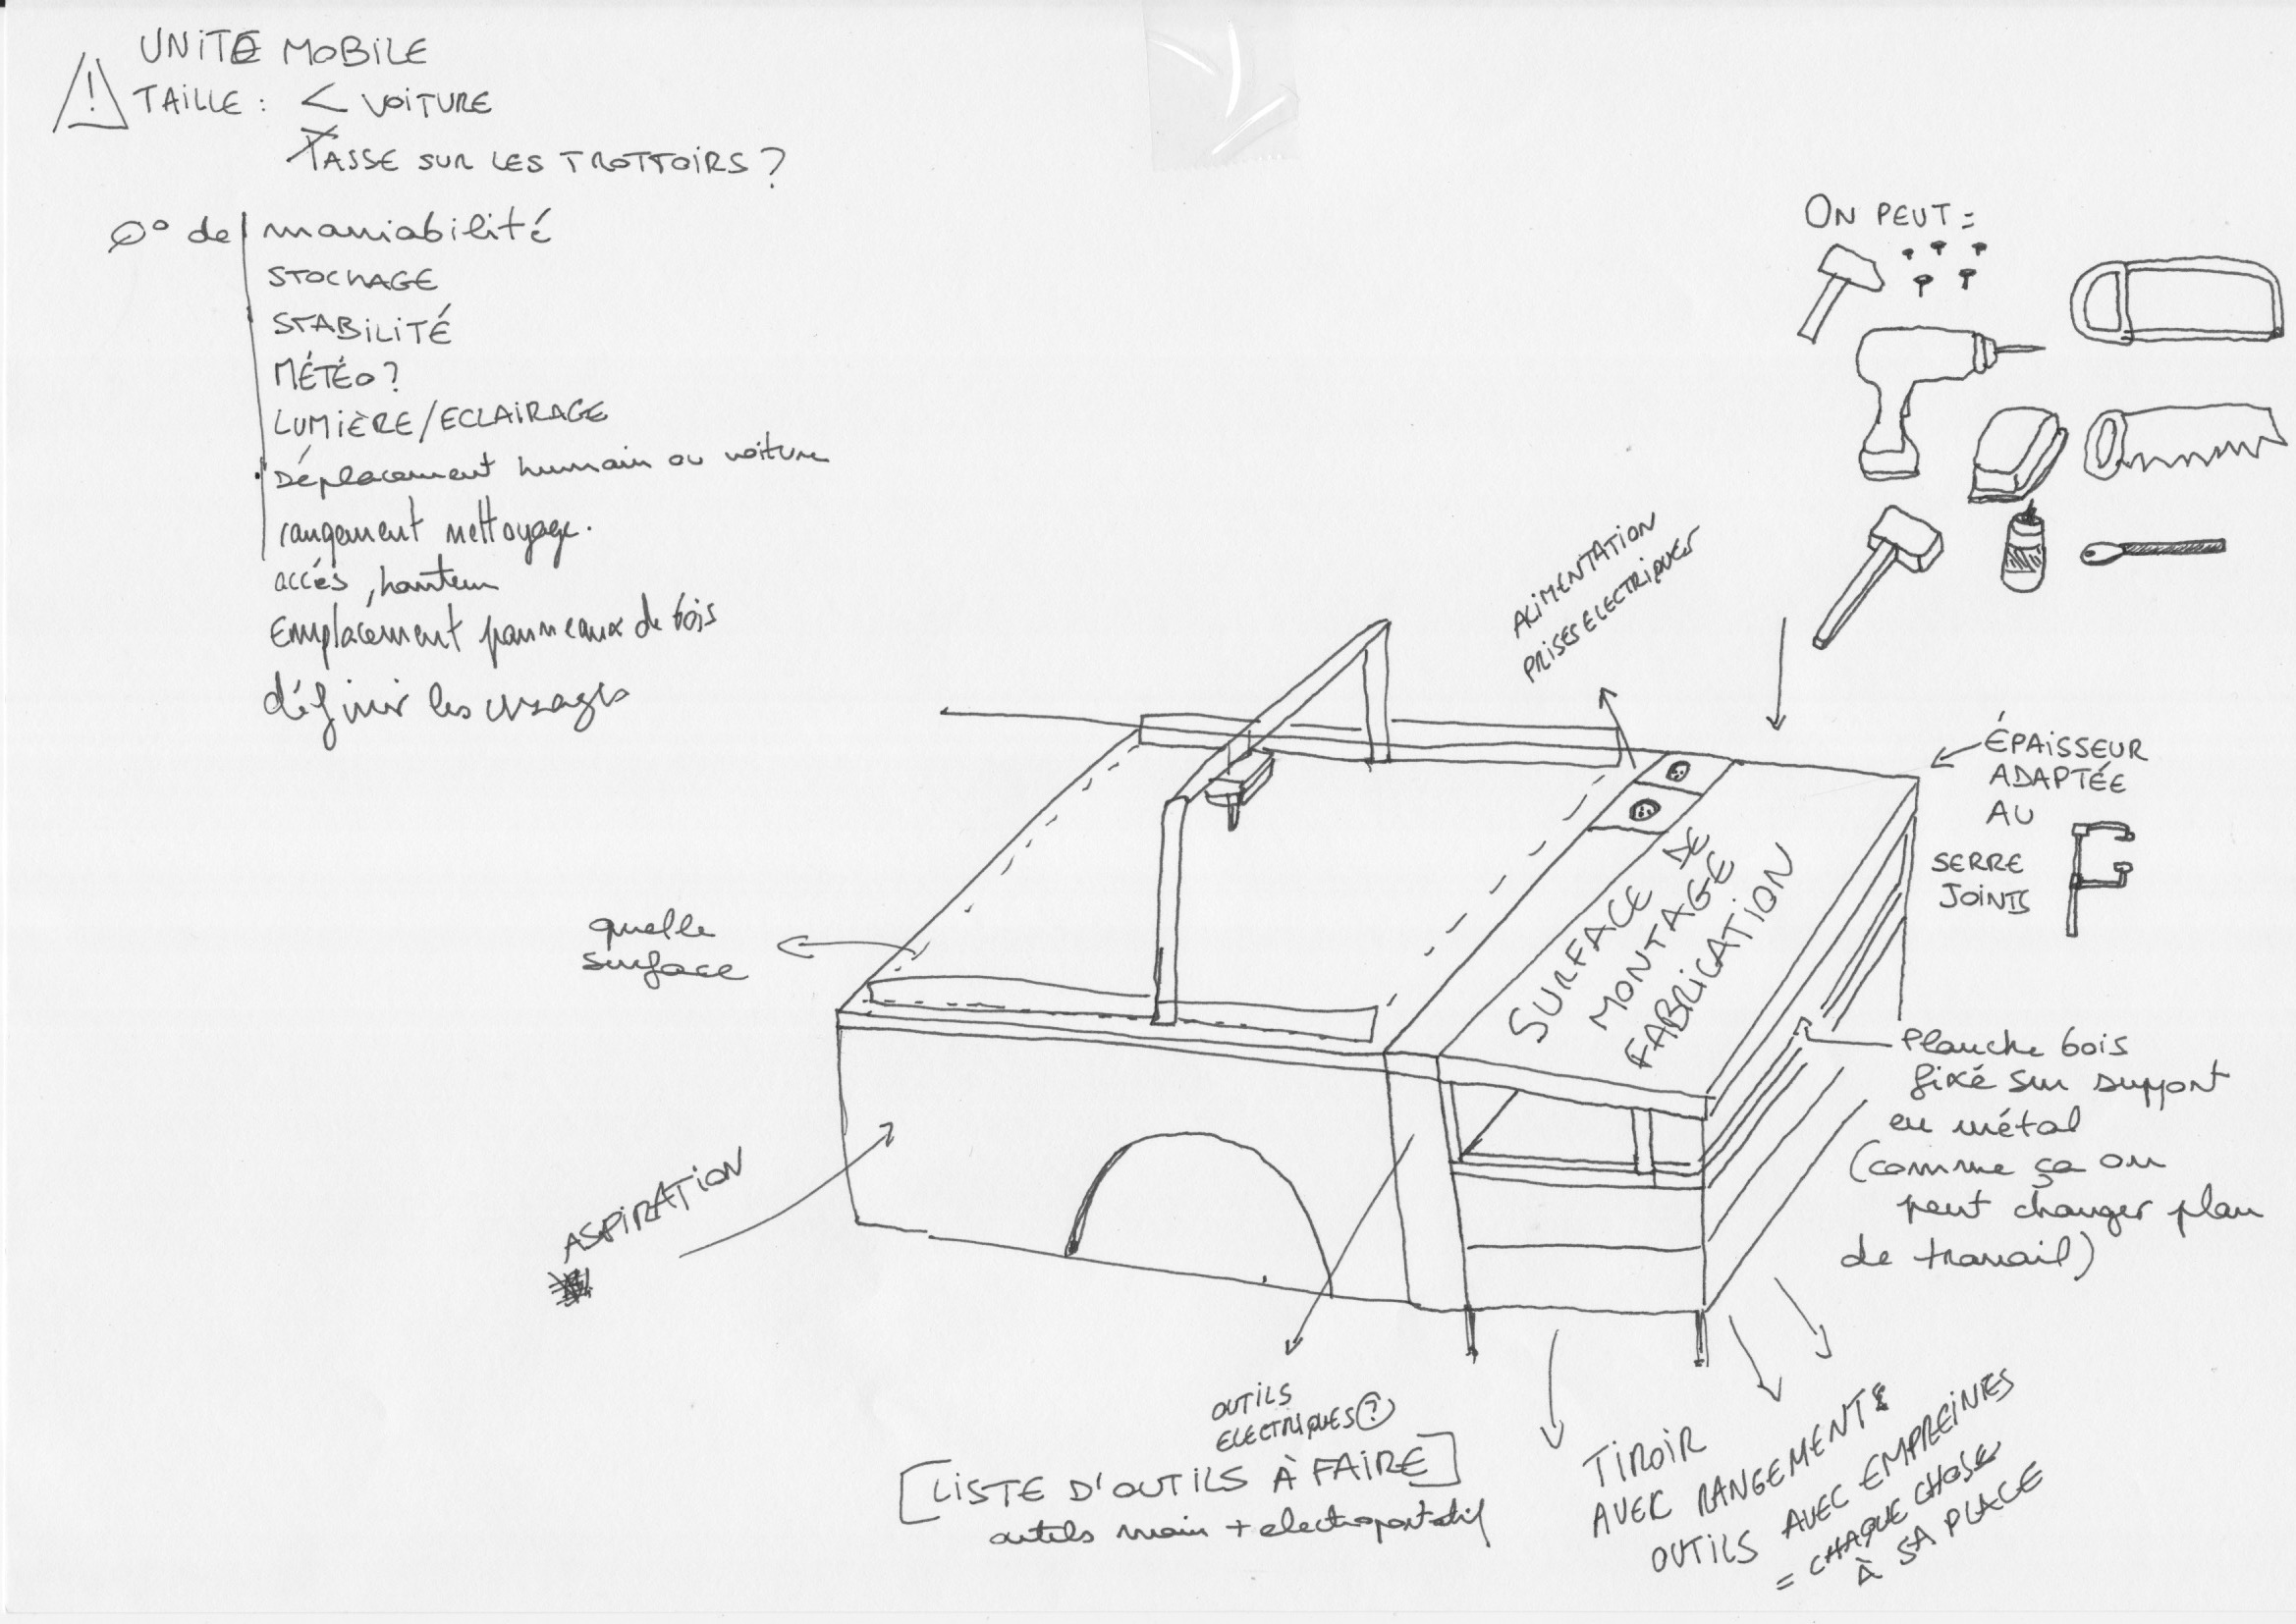 UNITE MOBILE
TAILLE : < VOITURE
PASSE SUR LES TROTTOIRS ?
de maniabilité
STOCKAGE
STABILITÉ
MÉTÉO ?
LUMIÈRE/ECLAIRAGE
Déplacement humain ou voiture
rangement nettoyage.
accès, hauteur
Emplacement panneaux de bois
définir les usages
ON PEUT :
ALIMENTATION
PRISES ELECTRIQUES
ÉPAISSEUR
ADAPTÉE
AU
SERRE
JOINTS
quelle
surface
SURFACE DE
MONTAGE
FABRICATION
Planche bois
fixé sur support
en métal
(comme ça on
peut changer plan
de travail)
ASPIRATION
OUTILS
ELECTRIQUES ?
[LISTE D'OUTILS À FAIRE]
outils main + electroportatif
TIROIR
AVEC RANGEMENT
OUTILS AVEC EMPREINTES
= CHAQUE CHOSE
À SA PLACE